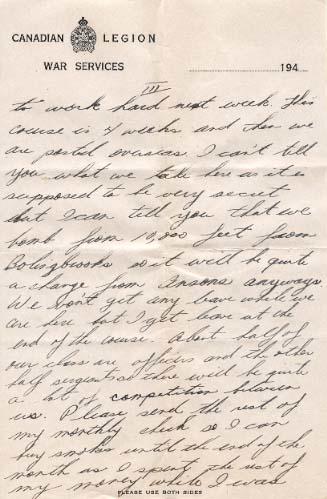 CANADIAN LEGION
WAR SERVICES
194
III
to work hard next week. This
course is 4 weeks and then we
are posted overseas. I can't tell
you what we take here as it is
supposed to be very secret
but I can tell you that we
bomb from 10,000 feet from
Bolingbrooks so it will be quite
a change from Ansons anyways.
We don't get any leave while we
are here but I get leave at the
end of the course. About half of
our class are officers and the other
half sergeants so there will be quite
a lot of competition between
us. Please send the rest of
my monthly check so I can
buy smokes until the end of the
month as I spent the rest of
my money while I was
PLEASE USE BOTH SIDES